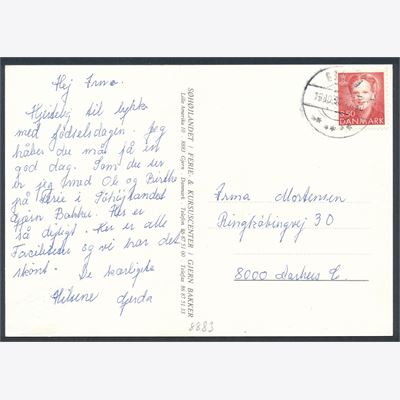 Hej Irma.
Hjertelig til lykke
med fødselsdagen. Jeg
håber du må få en
god dag. Som du ser
er jeg med Ole og Birthe
på Ferie i Søhøjlandet
Gjern Bakker. Her er
så dejligt. Her er alle
Faciliteter og vi har det
skønt. De kærligste
Hilsne Gerda
SØHØJLANDET / FERIE- & KURSUSCENTER / GJERN BAKKER
8883 Gjern - Danmark
8883
3.50
DANMARK
Irma Mortensen
Ringkøbingvej 30
8000 Aarhus C.